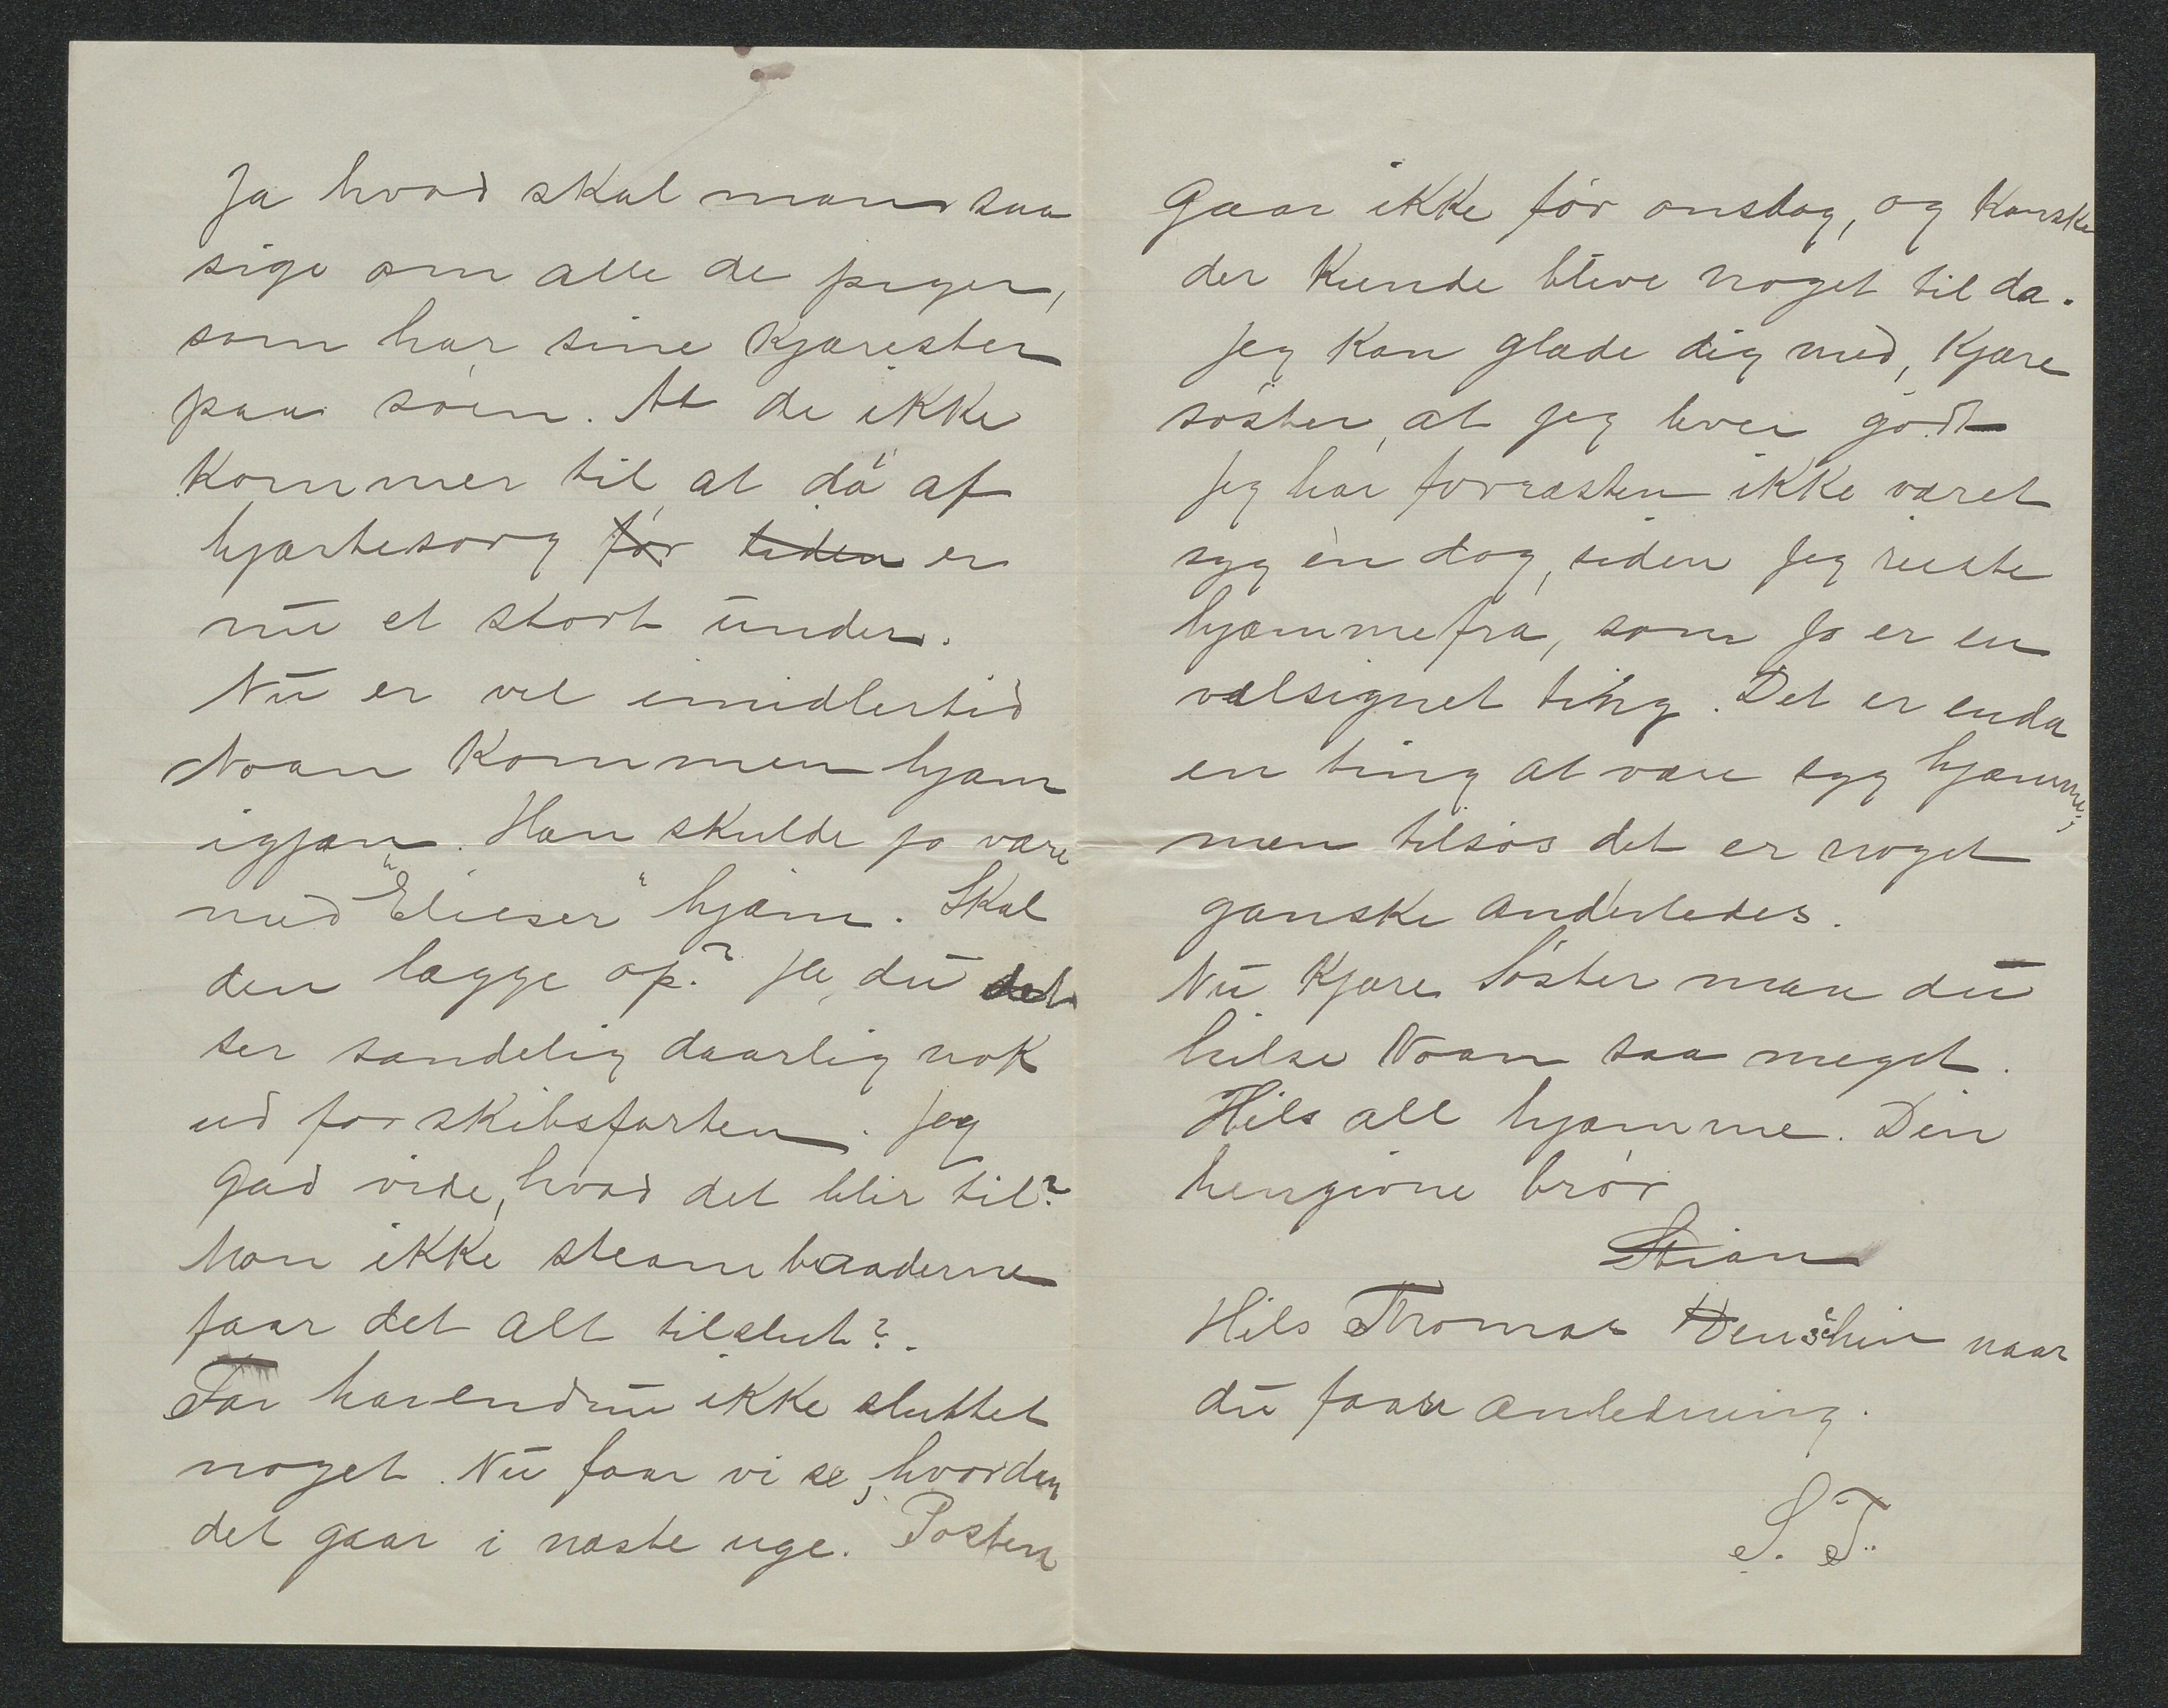 Ja hvad skal man saa
sige om alle de piger,
som har sine kjærester
paa søen. At de ikke
kommer til at dø af
hjærtesorg før tiden er
nu et stort under.
Nu er vel imidlertid
Noan kommen hjæm
igjæn. Han skulde jo være
med "Elieser" hjæm. Skal
den lægge op? Ja, du det
ser sandelig daarlig nok
ud for skibsfarten. Jeg
gad vide, hvad det blir til?
Mon ikke steambaaderne
faar det alt tilslut?
Far har endnu ikke sluttet
noget. Nu faar vi se, hvordan
det gaar i næste uge. Posten
gaar ikke før onsdag, og kanske
der kunde blive noget til da.
Jeg kan glæde dig med, kjære
søster, at jeg lever godt
Jeg har forræsten ikke været
syg èn dag, siden jeg reiste
hjæmmefra, som jo er en
vælsignet ting. Det er enda
en ting at være syg hjæmme;
men tilsøs det er noget
ganske anderledes.
Nu kjære søster maa du
hilse Noan saa meget.
Hils all hjæmme. Din
hengivne brør
Stian
Hils Thomas naar
du faar anledning.
S. T.